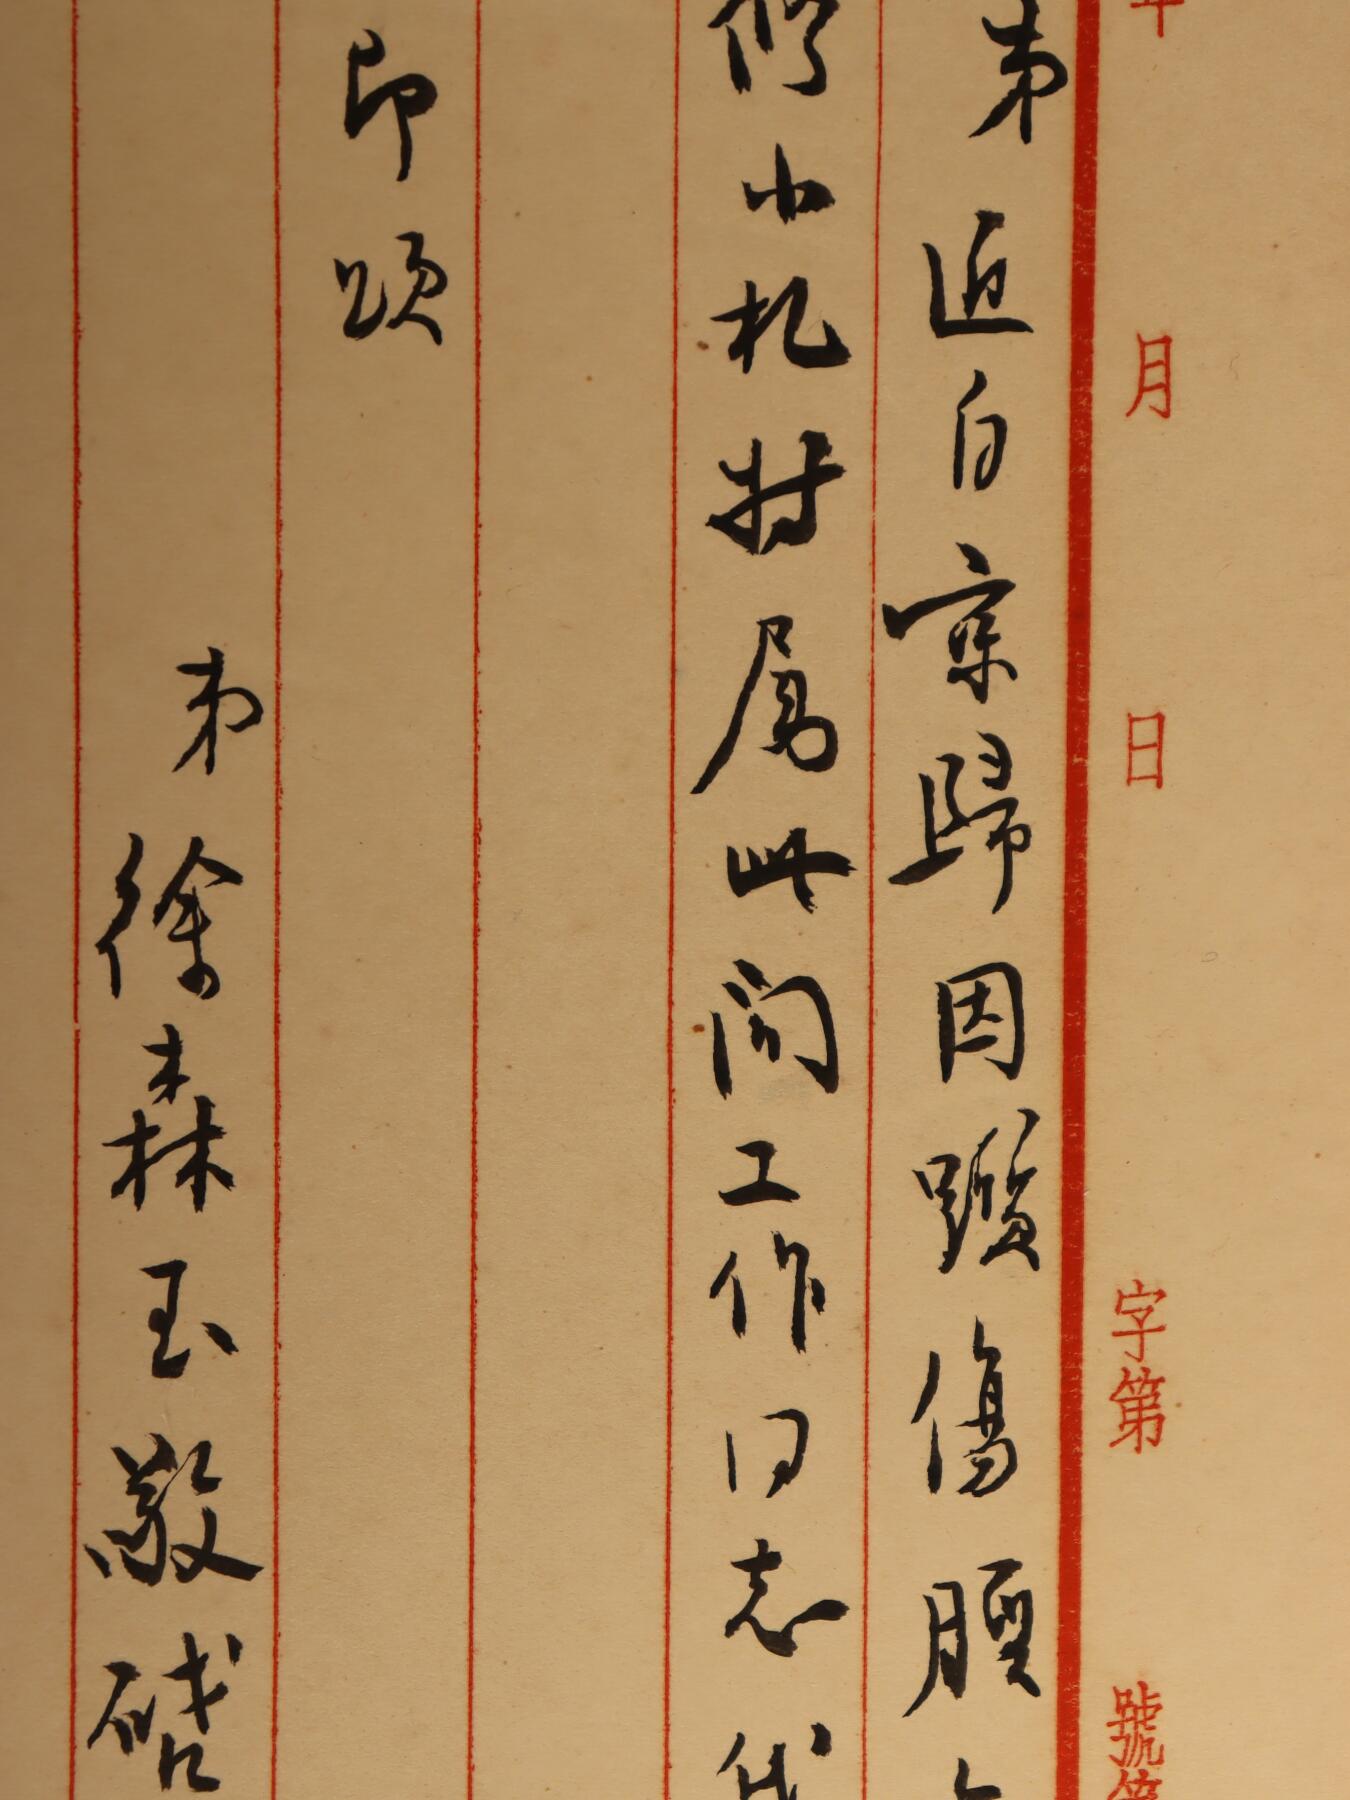 年 月 日 字第 號第
弟近自京歸因躓傷脛
修小札特属此間工作同志代
即頌
弟徐森玉敬啓